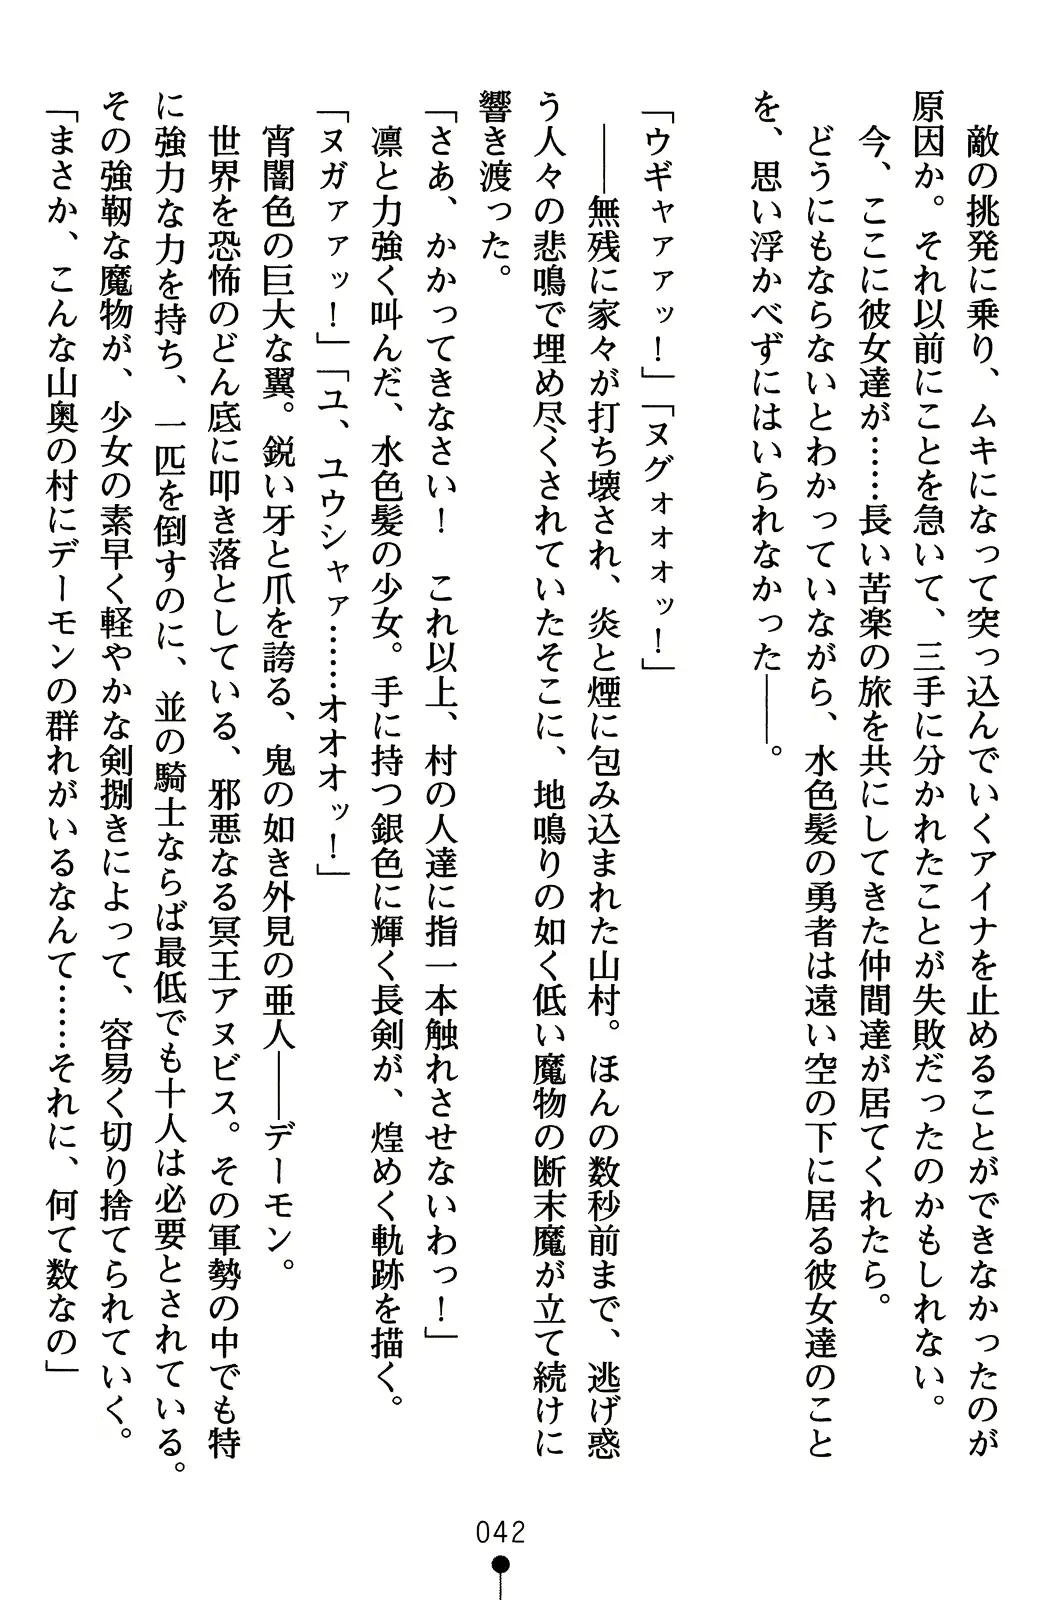 敵の挑発に乗り、ムキになって突っ込んでいくアイナを止めることができなかったのが
原因か。それ以前にことを急いて、三手に分かれたことが失敗だったのかもしれない。
今、ここに彼女達が……長い苦楽の旅を共にしてきた仲間達が居てくれたら。
どうにもならないとわかっていながら、水色髪の勇者は遠い空の下に居る彼女達のこと
を、思い浮かべずにはいられなかった――。
「ウギャァァッ！」「ヌグォォォッ！」
――無残に家々が打ち壊され、炎と煙に包み込まれた山村。ほんの数秒前まで、逃げ惑
う人々の悲鳴で埋め尽くされていたそこに、地鳴りの如く低い魔物の断末魔が立て続けに
響き渡った。
「さあ、かかってきなさい！　これ以上、村の人達に指一本触れさせないわっ！」
凛と力強く叫んだ、水色髪の少女。手に持つ銀色に輝く長剣が、煌めく軌跡を描く。
「ヌガァァッ！」「ユ、ユウシャァ……オオオッ！」
宵闇色の巨大な翼。鋭い牙と爪を誇る、鬼の如き外見の亜人――デーモン。
世界を恐怖のどん底に叩き落としている、邪悪なる冥王アヌビス。その軍勢の中でも特
に強力な力を持ち、一匹を倒すのに、並の騎士ならば最低でも十人は必要とされている。
その強靭な魔物が、少女の素早く軽やかな剣捌きによって、容易く切り捨てられていく。
「まさか、こんな山奥の村にデーモンの群れがいるなんて……それに、何て数なの」
042